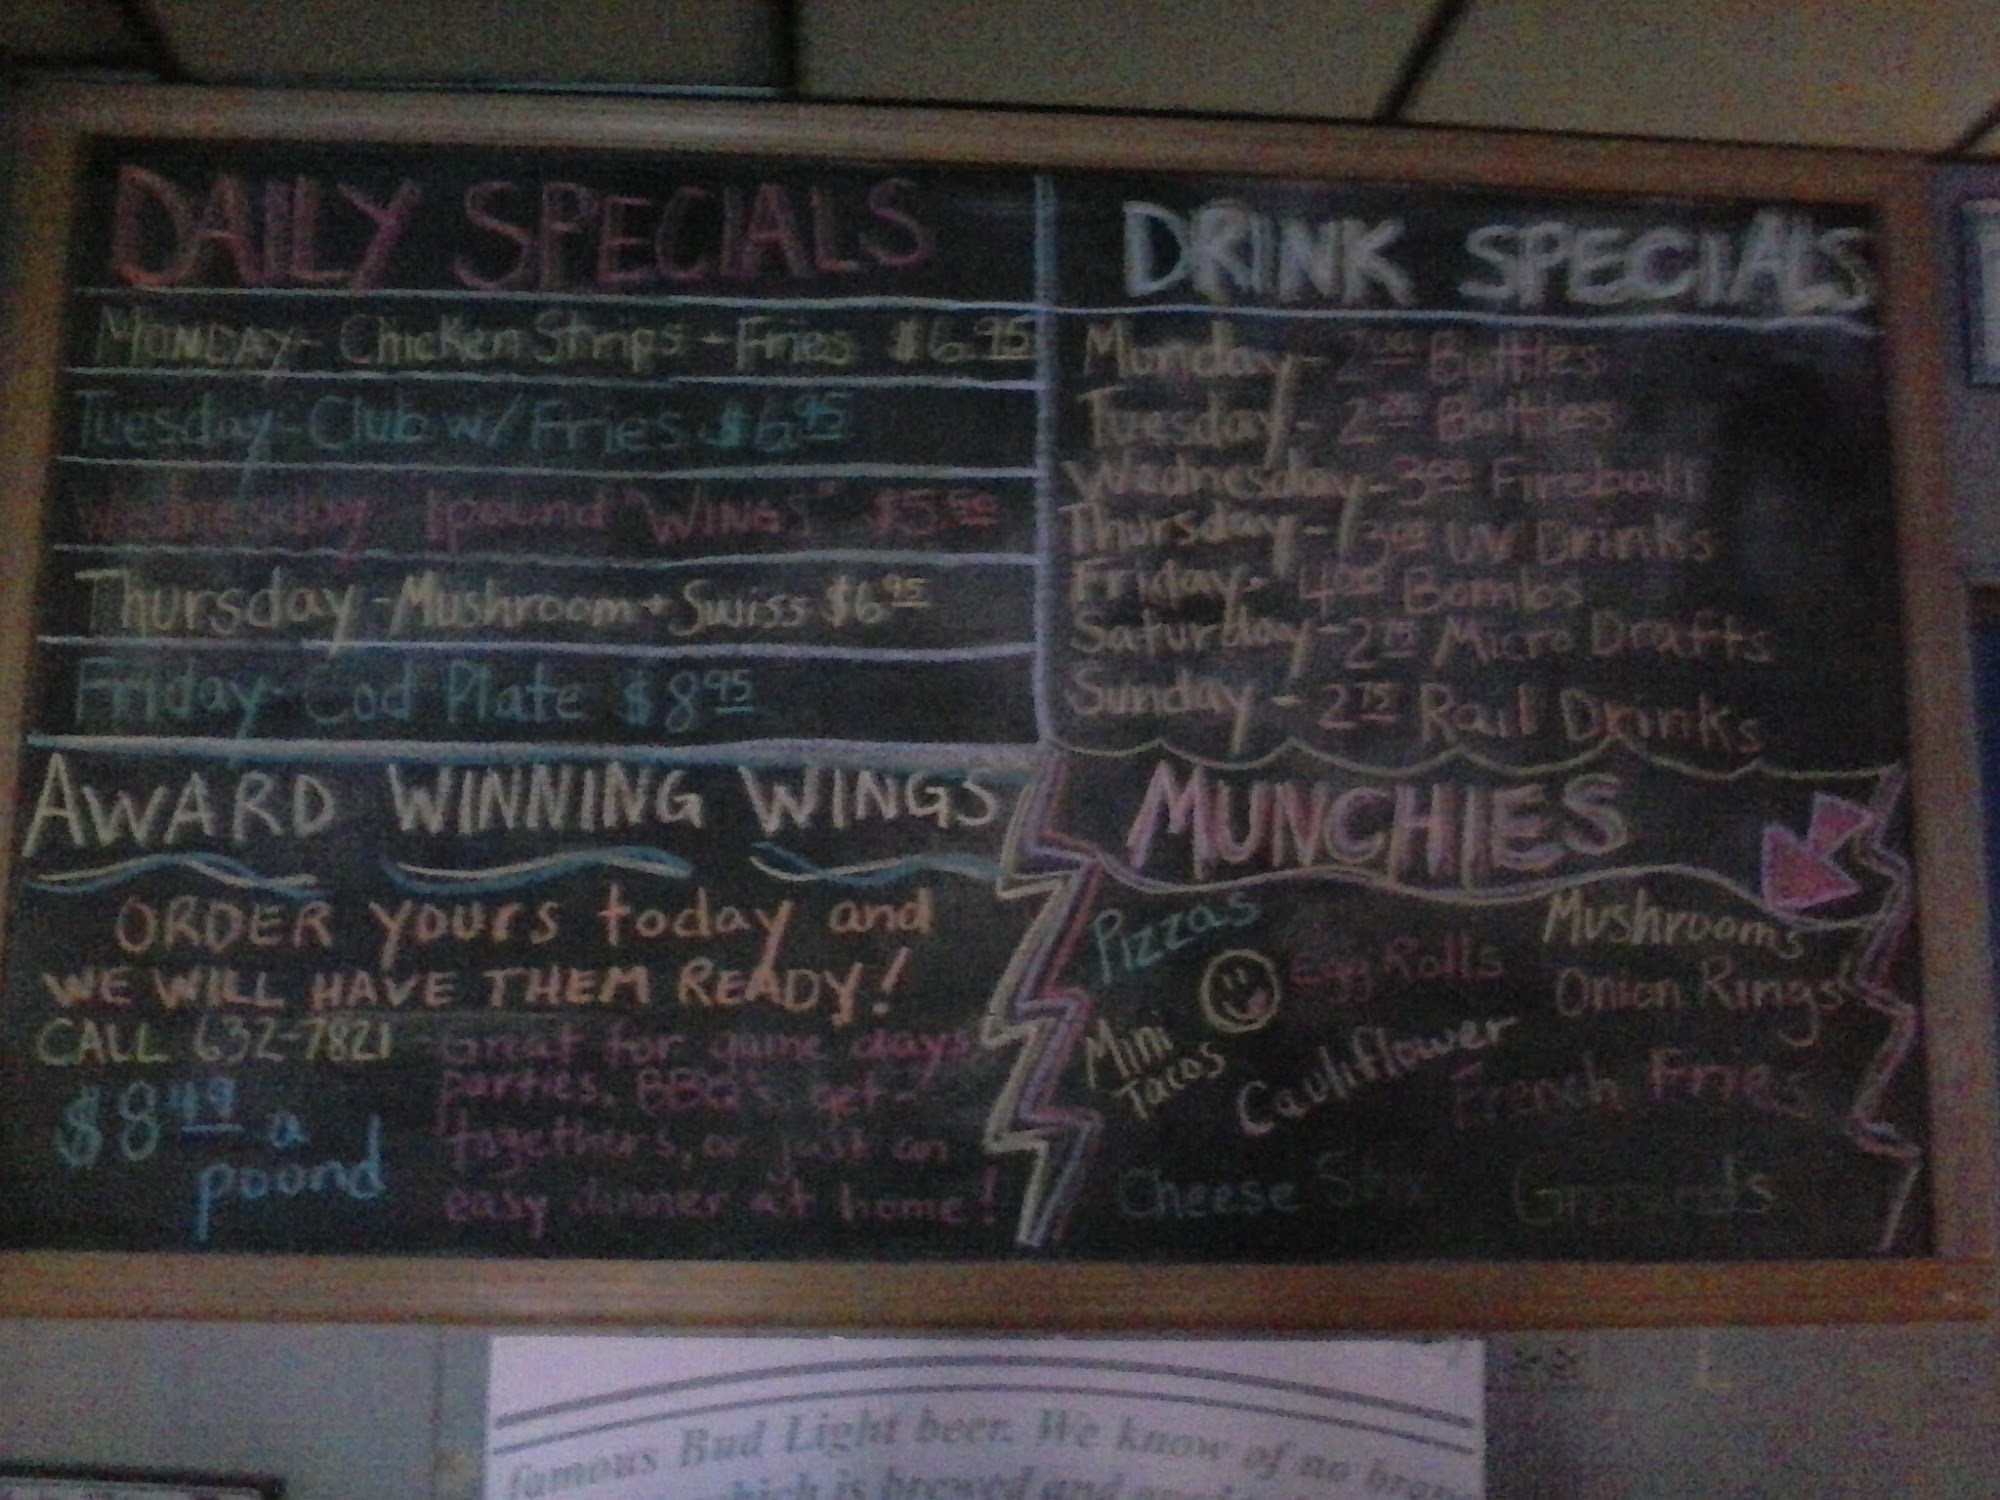 DAILY SPECIALS
MONDAY- Chicken Strips - Fries $6.95
Tuesday- Club w/ Fries $6.95
Wednesday 1 pound "WINGS" $5.50
Thursday - Mushroom + Swiss $6.95
Friday- Cod Plate $8.95
DRINK SPECIALS
Munday- 2.00 Bottles
Tuesday- 2.00 Bottles
Wednesday- 3.00 Fireball
Thursday- 3.00 UV Drinks
Friday- 4.00 Bombs
Saturday- 2.75 Micro Drafts
Sunday - 2.75 Rail Drinks
AWARD WINNING WINGS
ORDER yours today and
WE WILL HAVE THEM READY!
CALL 632-7821
$8.49 a
pound
-Great for game days,
parties, BBQ's, get-
togethers, or just an
easy dinner at home!
MUNCHIES
Pizzas
Egg Rolls
Mushrooms
Onion Rings
Mini
Tacos
Cauliflower
French Fries
Cheese Stix
famous Bud Light beer. We know of no
which is brewed and